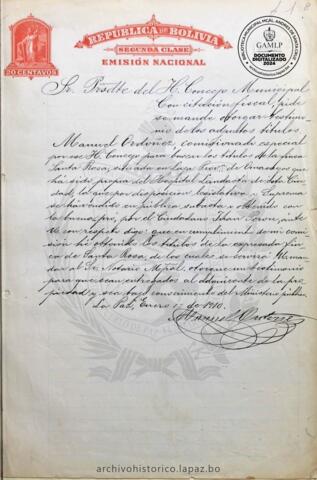 REPUBLICA DE BOLIVIA
SEGUNDA CLASE
EMISIÓN NACIONAL
20 CENTAVOS
BIBLIOTECA MUNICIPAL MCAL. ANDRÉS DE SANTA CRUZ
GAMLP
DOCUMENTO
DIGITALIZADO
2024
Sr. Psdte del H. Concejo Municipal
Con citación fiscal, pide
se mande otorgar testimo
nio de los adjuntos títulos.
Manuel Ordóñez, comisionado especial
por ese H. Concejo para buscar los títulos de la finca
Santa Rosa, situada en la Prov. de Omasuyos que
ha sido propia del Hospital Landaeta de esta Ciu
dad, la que por disposición legislativa y Suprema
se ha vendido en pública subasta
la buena pró, por el Ciudadano
Ud. con respeto digo: que en cumplimiento de mi co
misión he obtenido los títulos de la expresada fin
ca de Santa Rosa, de los cuales se servirá Ud. man
dar al Sr. Notario Mpal. otorgue un testimonio
para que sean entregados al adquirente de la pro
piedad, y sea bajo conocimiento del Ministerio público.
La Paz, Enero 12 de 1910.
Manuel Ordóñez
archivohistorico.lapaz.bo